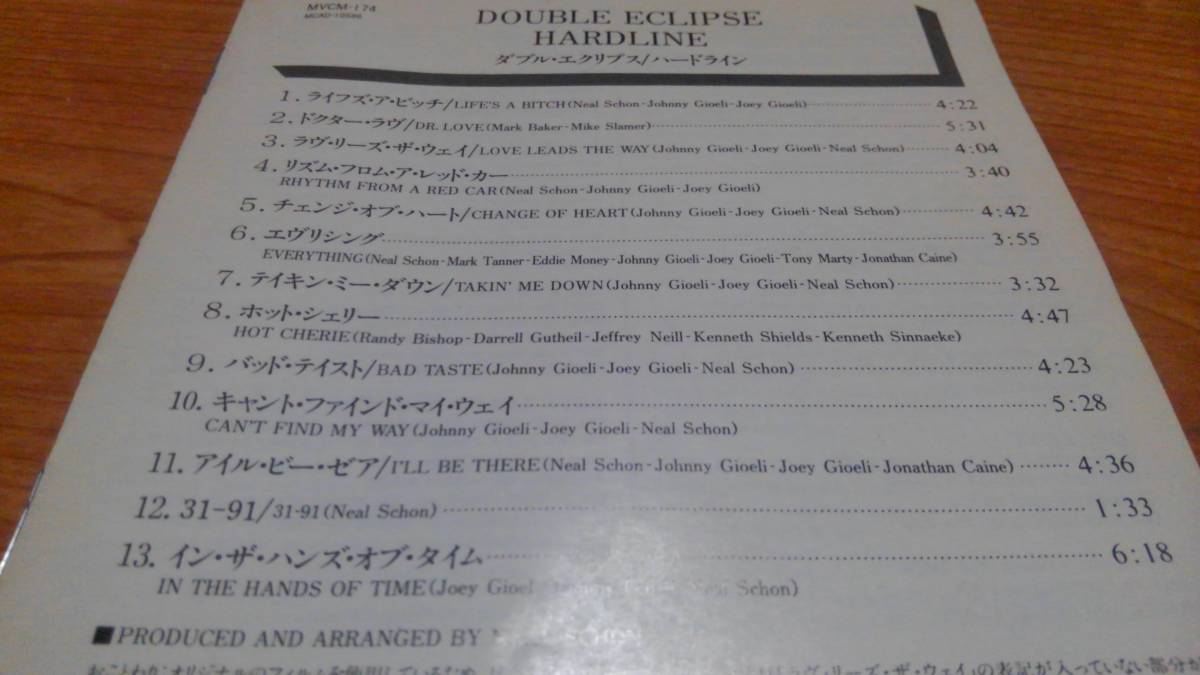 MVCM-174
MCAD-10586
DOUBLE ECLIPSE
HARDLINE
ダブル・エクリプス/ハードライン
1. ライフズ・ア・ビッチ/LIFE'S A BITCH(Neal Schon-Johnny Gioeli-Joey Gioeli) 4:22
2. ドクター・ラヴ/DR. LOVE(Mark Baker-Mike Slamer) 5:31
3. ラヴ・リーズ・ザ・ウェイ/LOVE LEADS THE WAY(Johnny Gioeli-Joey Gioeli-Neal Schon) 4:04
4. リズム・フロム・ア・レッド・カー 3:40
RHYTHM FROM A RED CAR(Neal Schon-Johnny Gioeli-Joey Gioeli)
5. チェンジ・オブ・ハート/CHANGE OF HEART(Johnny Gioeli-Joey Gioeli-Neal Schon) 4:42
6. エヴリシング 3:55
EVERYTHING(Neal Schon-Mark Tanner-Eddie Money-Johnny Gioeli-Joey Gioeli-Tony Marty-Jonathan Caine)
7. テイキン・ミー・ダウン/TAKIN' ME DOWN(Johnny Gioeli-Joey Gioeli-Neal Schon) 3:32
8. ホット・シェリー 4:47
HOT CHERIE(Randy Bishop-Darrell Gutheil-Jeffrey Neill-Kenneth Shields-Kenneth Sinnaeke)
9. バッド・テイスト/BAD TASTE(Johnny Gioeli-Joey Gioeli-Neal Schon) 4:23
10. キャント・ファインド・マイ・ウェイ 5:28
CAN'T FIND MY WAY(Johnny Gioeli-Joey Gioeli-Neal Schon)
11. アイル・ビー・ゼア/I'LL BE THERE(Neal Schon-Johnny Gioeli-Joey Gioeli-Jonathan Caine) 4:36
12. 31-91/31-91(Neal Schon) 1:33
13. イン・ザ・ハンズ・オブ・タイム 6:18
IN THE HANDS OF TIME(Joey Gioeli Neal Schon)
■PRODUCED AND ARRANGED BY NEAL SCHON
おことわり:オリジナルのフィルムを使用しているため、 ラヴ・リーズ・ザ・ウェイ」の表記が入っていない部分が